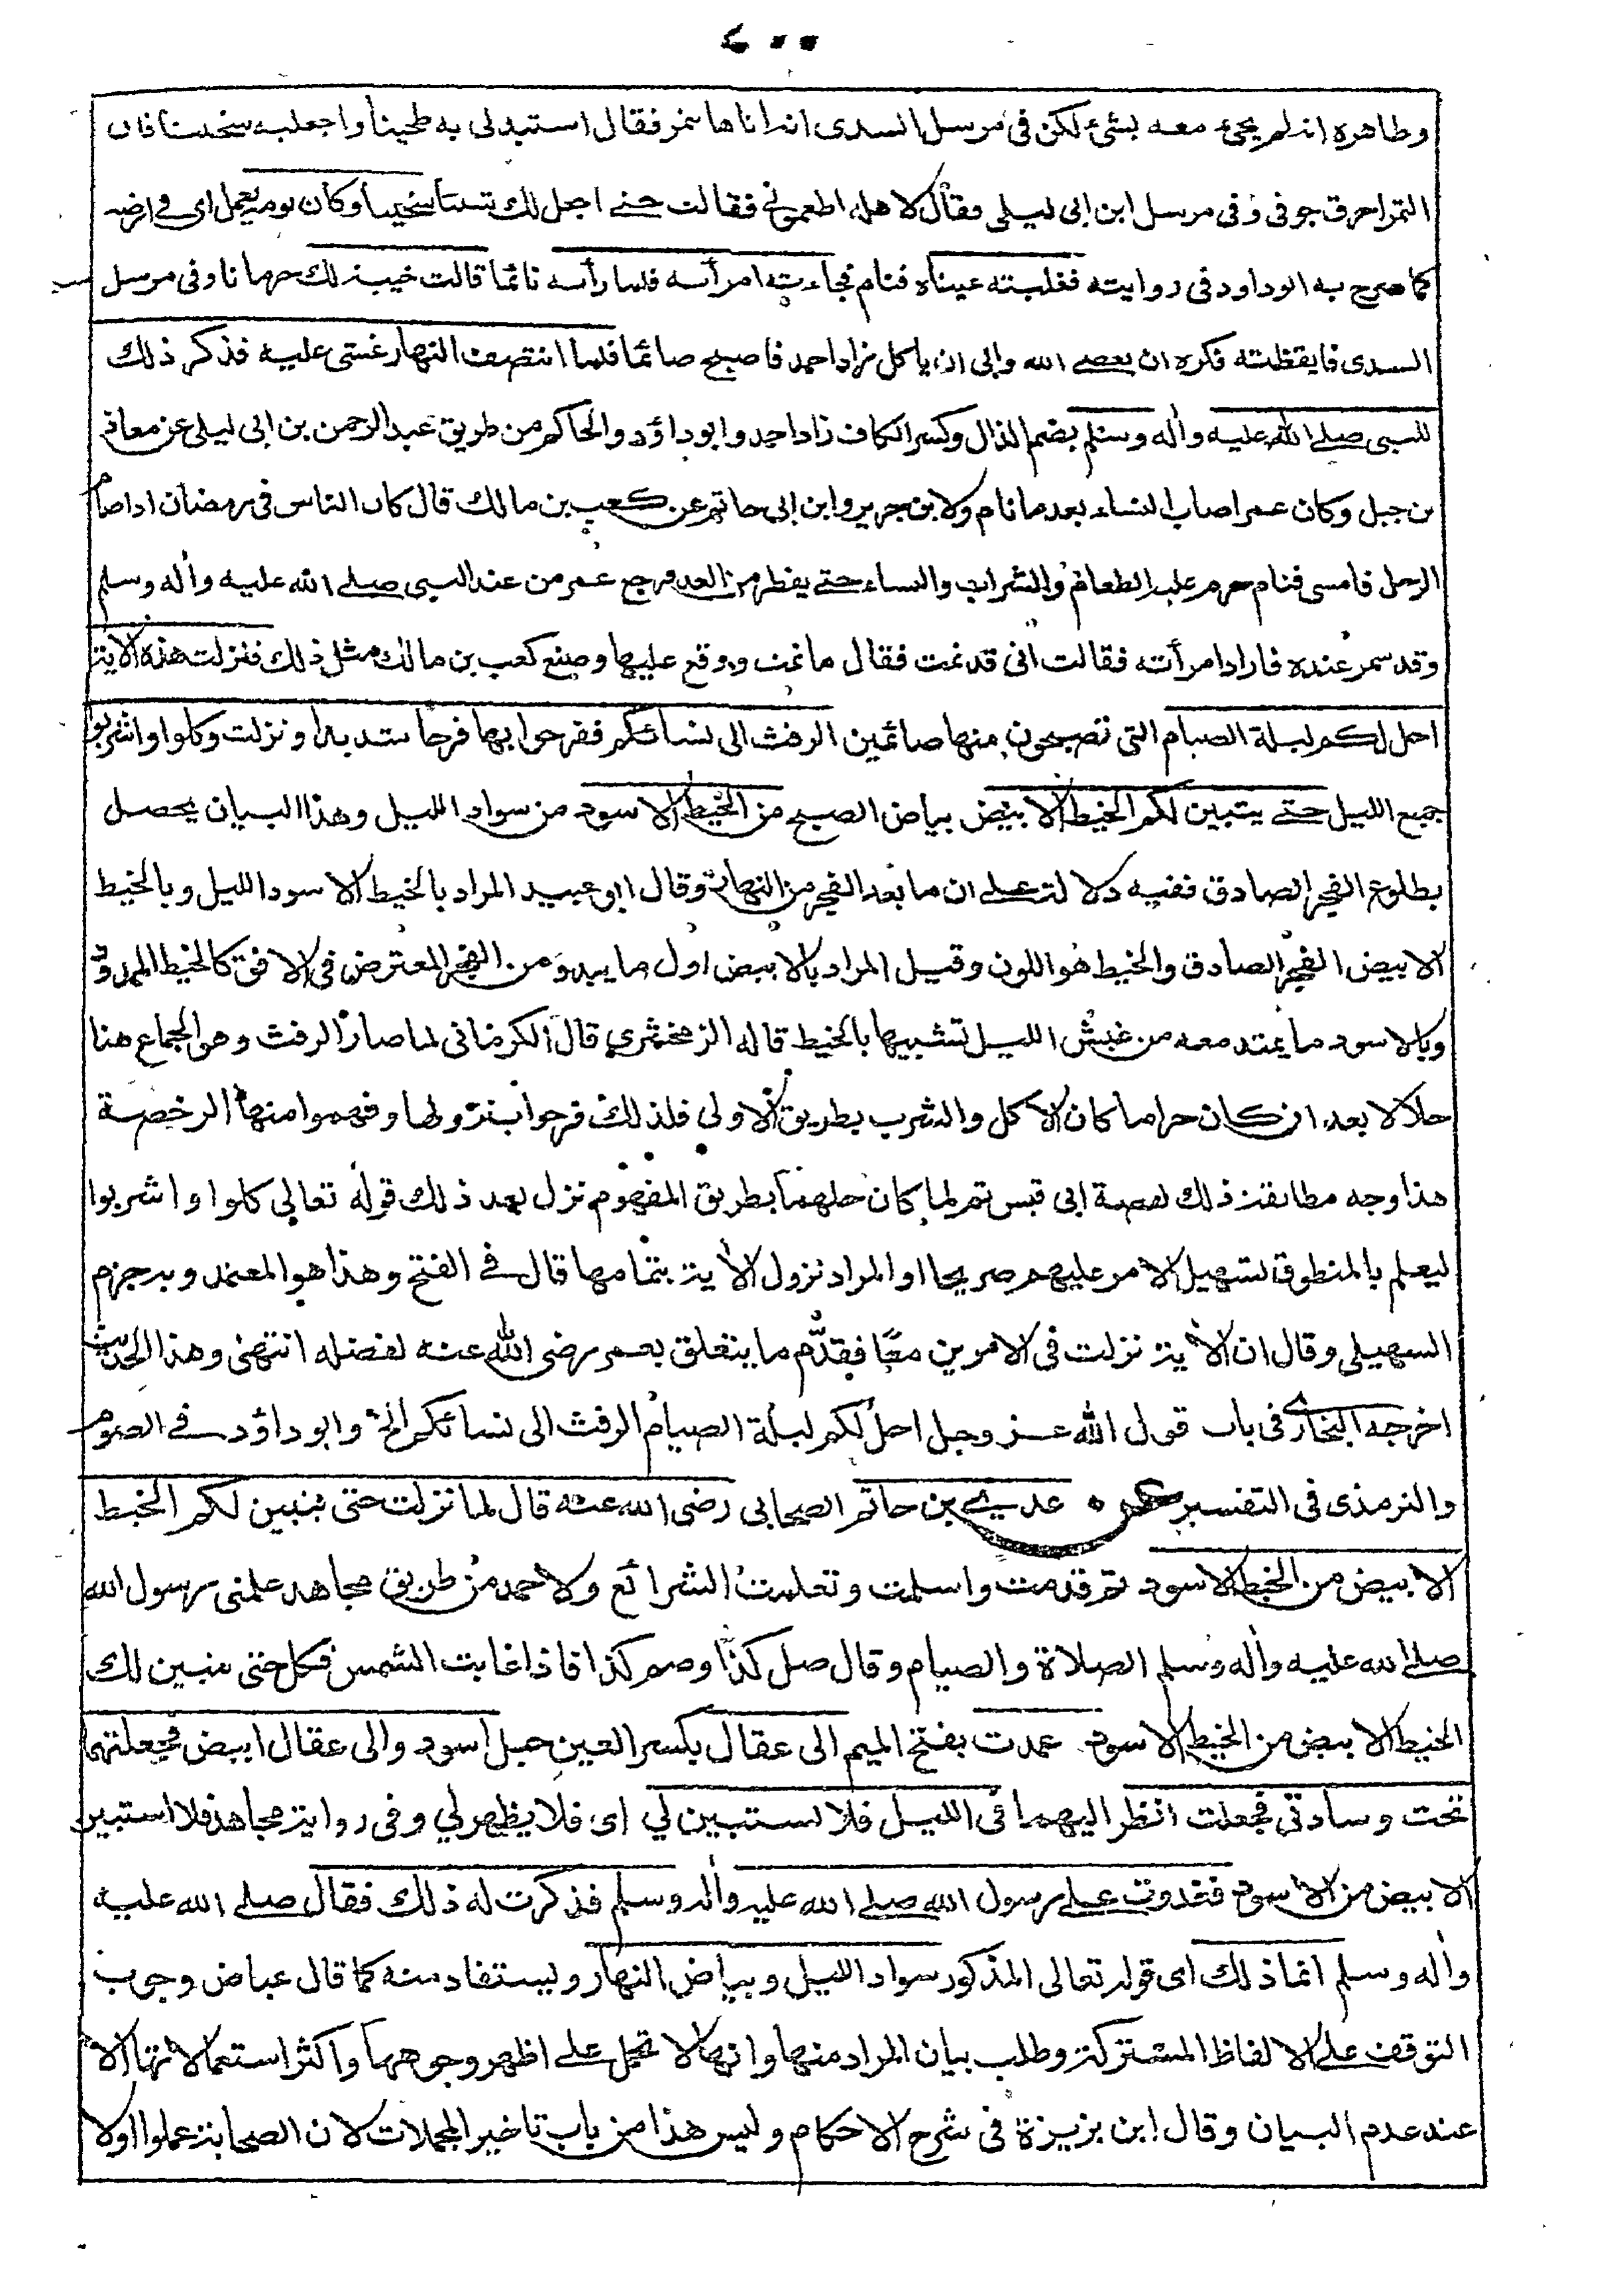 ٤٠٠
وظاهره انه لم يجئ معه بشئ لكن فى مرسل السدى انه اتاها بتمر فقال استبدلى به طحينا واجعليه سخينا فان
التمر احرق جوفى وفى مرسل ابن ابى ليلى فقال لاهله اطعمونى فقالت حتى اجعل لك شيئا سخينا وكان يومه يعمل اى فى ارضه
كما صرح به ابو داود فى روايته فغلبته عيناه فنام فجاءته امرأته فلما رأته نائما قالت خيبة لك حرمانا وفى مرسل
السدى فايقظته فكره ان يعصے الله وابى ان ياكل زاد احمد فاصبح صائما فلما انتصف النهار غشى عليه فذكر ذلك
للنبى صلے الله عليه وأله وسلم بضم الذال وكسر الكاف زاد احمد وابو داؤد والحاكم من طريق عبد الرحمن بن ابى ليلى عن معاذ
بن جبل وكان عمر اصاب النساء بعد ما نام ولابن جرير وابن ابى حاتم عن كعب بن مالك قال كان الناس فى رمضان اذا صام
الرجل فامسى فنام حرم عليه الطعام والشراب والنساء حتے يفطر من الغد فرجع عمر من عند النبى صلے الله عليه وأله وسلم
وقد سمر عنده فاراد امرأته فقالت انى قد نمت فقال ما نمت ووقع عليها وصنع كعب بن مالك مثل ذلك فنزلت هذه الاية
احل لكم ليلة الصيام التى تصبحون منها صائمين الرفث الى نسائكم ففرحوا بها فرحا شديدا ونزلت وكلوا واشربوا
جميع الليل حتے يتبين لكم الخيط الابيض بياض الصبح من الخيط الاسود من سواد الليل وهذا البيان يحصل
بطلوع الفجر الصادق ففيه دلالة على ان ما بعد الفجر من النهار وقال ابو عبيد المراد بالخيط الاسود الليل وبالخيط
الابيض الفجر الصادق والخيط هو اللون وقيل المراد بالابيض اول ما يبدو من الفجر المعترض فى الافق كالخيط الممدود
وبالاسود ما يمتد معه من غبش الليل تشبيها بالخيط قاله الزمخشرى قال الكرمانى لما صار الرفث وهو الجماع هنا
حلالا بعد ان كان حراما كان الاكل والشرب بطريق الاولى فلذلك فرحوا بنزولها وفهموا منها الرخصة
هذا وجه مطابقة ذلك لقصة ابى قيس ثم لما كان حلهما بطريق المفهوم نزل بعد ذلك قوله تعالى كلوا واشربوا
ليعلم بالمنطوق تسهيل الامر عليهم صريحا او المراد نزول الأية بتمامها قال فى الفتح وهذا هو المعتمد وبه جزم
السهيلى وقال ان الأية نزلت فى الامرين معًا فقدّم ما يتعلق بعمر رضى الله عنه لفضله انتهى وهذا الحديث
اخرجه البخارى فى باب قول الله عز وجل احل لكم ليلة الصيام الرفث الى نسائكم الخ وابو داؤد فى الصوم
والترمذى فى التفسير عن عدى بن حاتم الصحابى رضى الله عنه قال لما نزلت حتى يتبين لكم الخيط
الابيض من الخيط الاسود ثم قدمت واسلمت وتعلمت الشرائع ولاحمد من طريق مجاهد علمنى رسول الله
صلے الله عليه وأله وسلم الصلاة والصيام وقال صل كذا وصم كذا فاذا غابت الشمس فكل حتى يتبين لك
الخيط الابيض من الخيط الاسود عمدت بفتح الميم الى عقال بكسر العين حبل اسود والى عقال ابيض فجعلتهما
تحت وسادتى فجعلت انظر اليهما فى الليل فلا تستبين لي اى فلا يظهر لي وفى رواية مجاهد فلا استبين
الابيض من الاسود فغدوت على رسول الله صلے الله عليه وأله وسلم فذكرت له ذلك فقال صلے الله عليه
وأله وسلم انما ذلك اى قوله تعالى المذكور سواد الليل وبياض النهار ويستفاد منه كما قال عياض وجوب
التوقف على الالفاظ المشتركة وطلب بيان المراد منها وانها لا تحمل على اظهر وجوهها واكثر استعمالاتها الا
عند عدم البيان وقال ابن بزيزة فى شرح الاحكام وليس هذا من باب تاخير المجملات لان الصحابة عملوا اولا